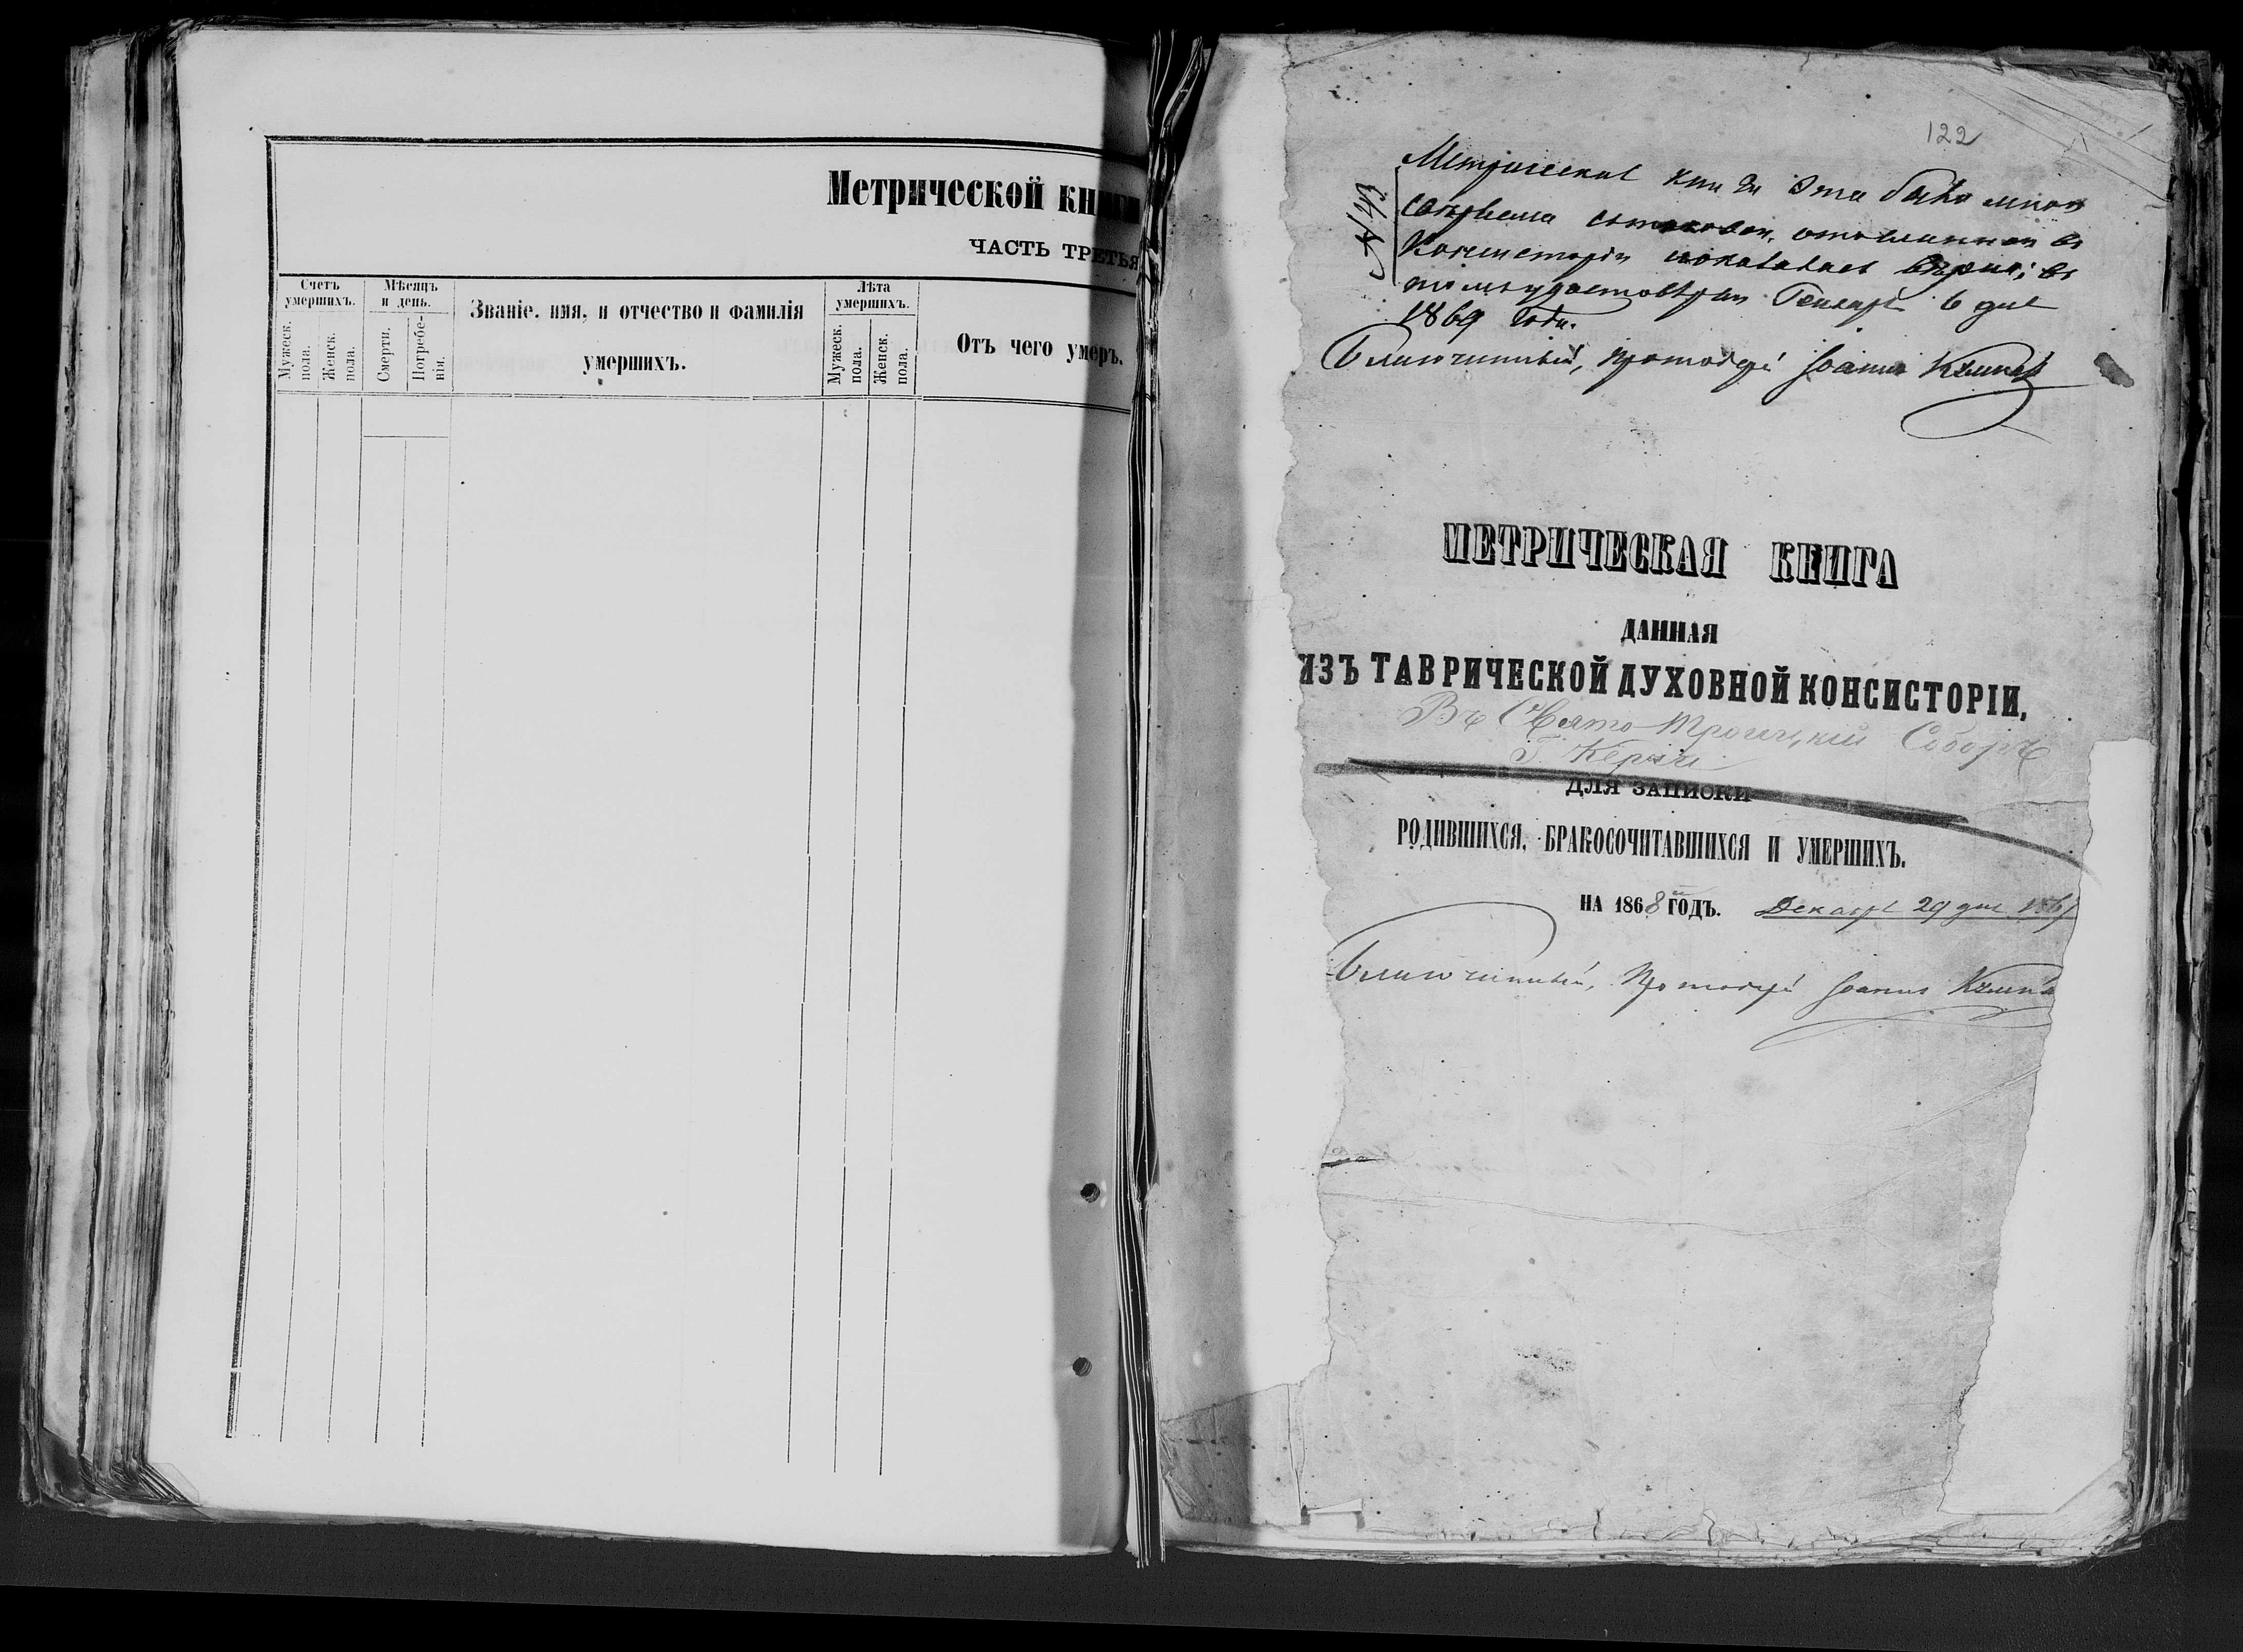 Метрической кни
ЧАСТЬ ТРЕТЬЯ
Счетъ умершихъ.
Мужеск. пола.
Женск. пола.
Мѣсяцъ и день.
Смерти.
Погребе-
нія.
Званіе, имя, и отчество и фамилія
умершихъ.
Лѣта умершихъ.
Мужеск. пола.
Женск. пола.
Отъ чего умеръ.
122
№ 43
Метрическая книга эта была мною
въ
Консисторіи въ
Генваря 6 дня
1869 года.
Благочинный, Протоіерей Іоаннъ
МЕТРИЧЕСКАЯ КНИГА
ДАННАЯ
ИЗЪ ТАВРИЧЕСКОЙ ДУХОВНОЙ КОНСИСТОРІИ,
Въ Свято-Троицкій Соборъ
Г. Керчи
ДЛЯ ЗАПИСКИ
РОДИВШИХСЯ, БРАКОСОЧИТАВШИХСЯ И УМЕРШИХЪ.
НА 1868й ГОДЪ. Декабря 29 дня 1867
Благочинный, Протоіерей Іоаннъ